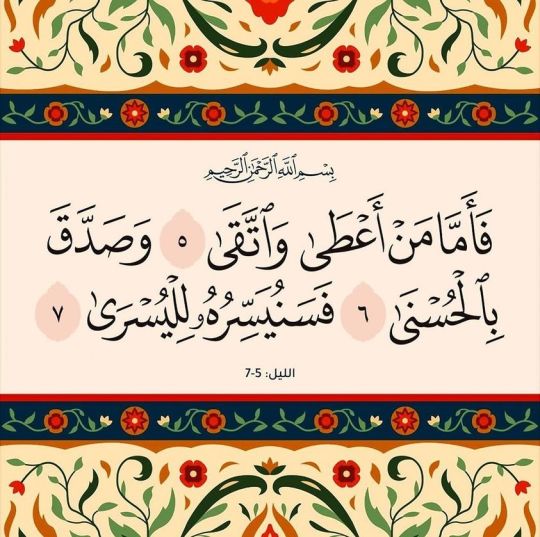 بِسْمِ ٱللَّهِ ٱلرَّحْمَٰنِ ٱلرَّحِيمِ
فَأَمَّا مَنْ أَعْطَىٰ وَٱتَّقَىٰ ٥ وَصَدَّقَ
بِٱلْحُسْنَىٰ ٦ فَسَنُيَسِّرُهُۥ لِلْيُسْرَىٰ ٧
الليل: 5-7